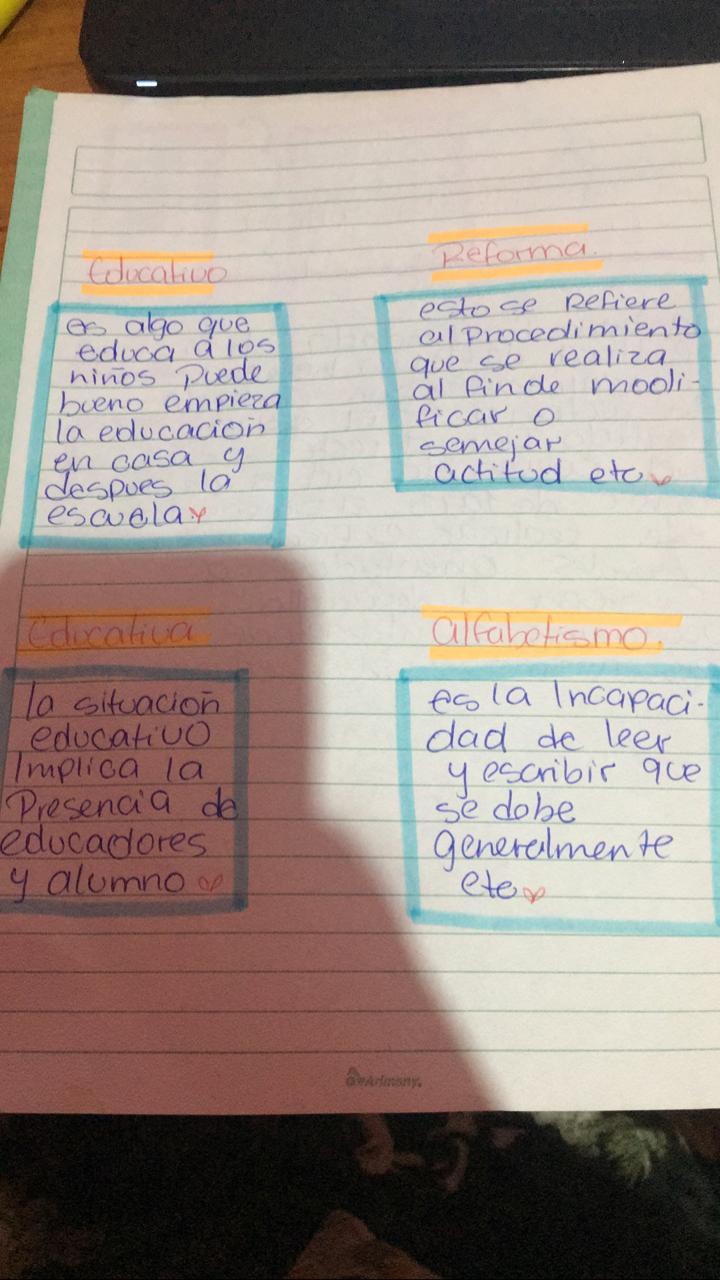 Educativo
es algo que
educa a los
niños Puede
bueno empieza
la educación
en casa y
despues la
escuela
Reforma.
esto se Refiere
al Procedimiento
que se realiza
al fin de modi-
ficar o
semejar
actitud etc
Educativa
la situación
educativo
Implica la
Presencia de
educadores
y alumno
alfabetismo.
es la Incapaci-
dad de leer
y escribir que
se dobe
generalmente
etc
Arimany.